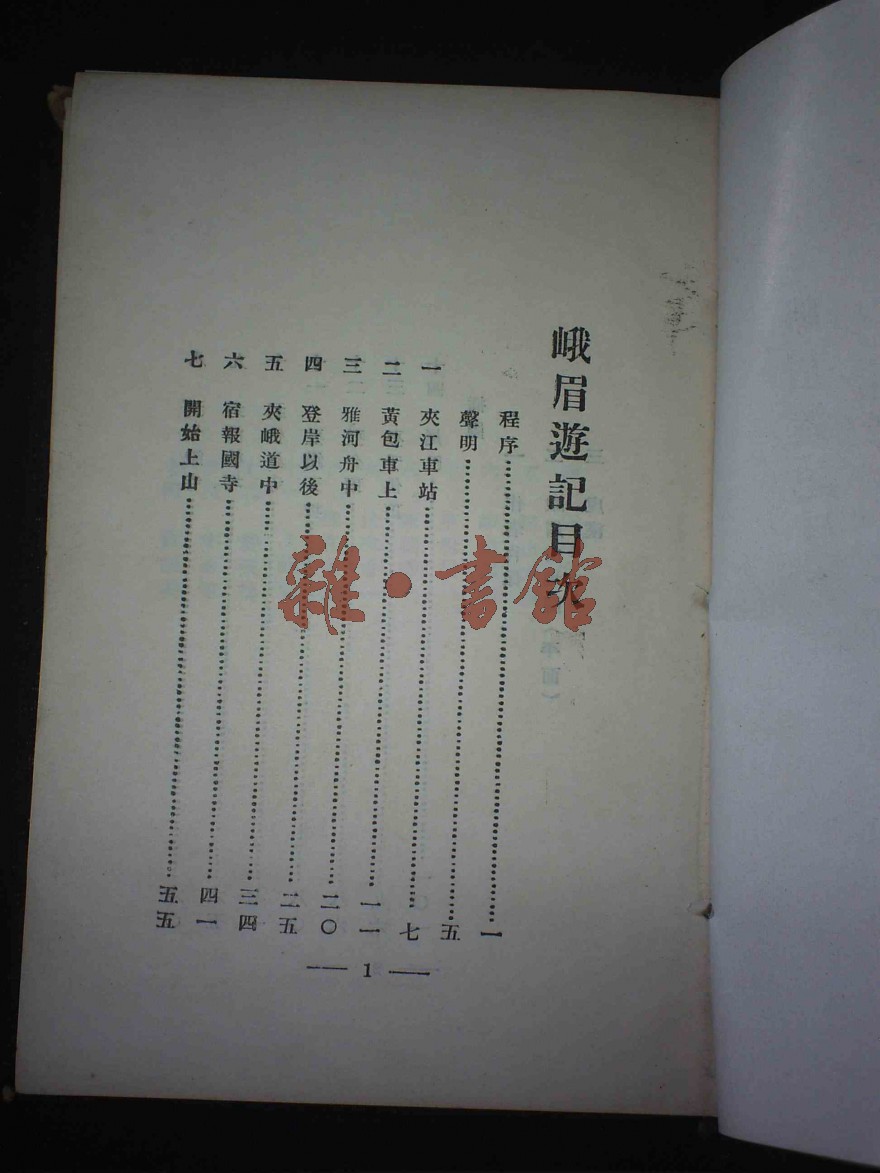 峨眉遊記目次
程序……一
聲明……五
一 夾江車站……七
二 黃包車上……一一
三 雅河舟中……二〇
四 登岸以後……二五
五 夾峨道中……三四
六 宿報國寺……四一
七 開始上山……五五
— 1 —
雜·書館